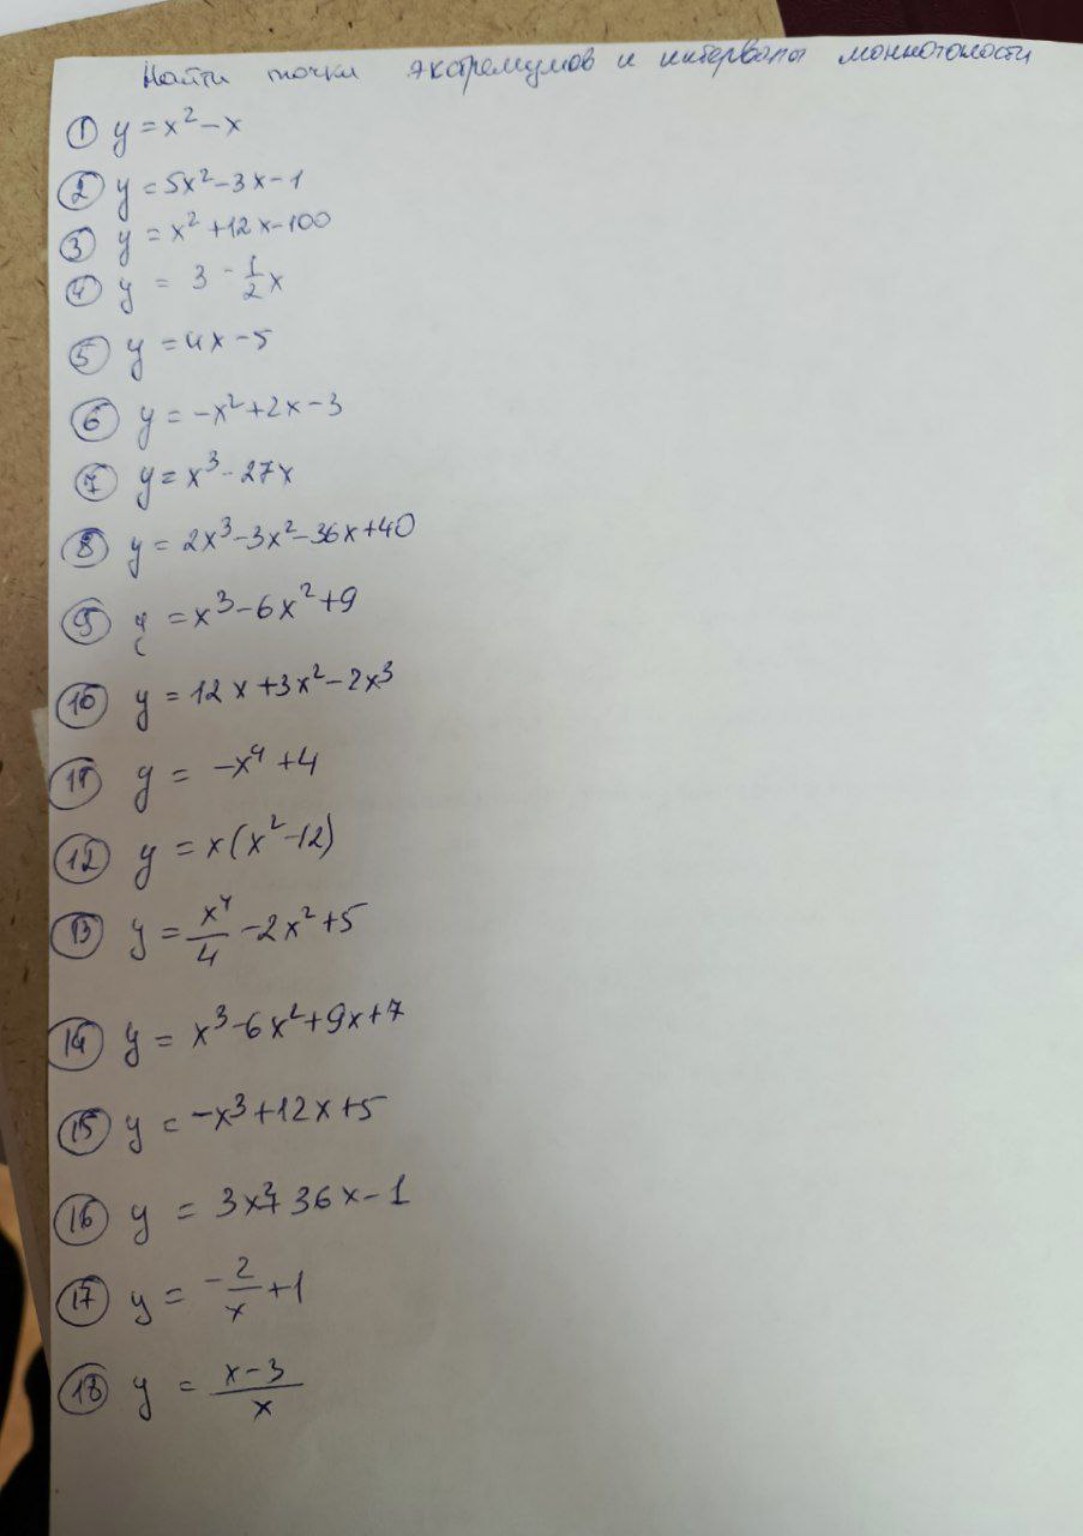 Найти точки экстремумов и интервалы моннотоности
① y = x² - x
② y = 5x² - 3x - 1
③ y = x² + 12x - 100
④ y = 3 - 1/2 x
⑤ y = 4x - 5
⑥ y = -x² + 2x - 3
⑦ y = x³ - 27x
⑧ y = 2x³ - 3x² - 36x + 40
⑨ y = x³ - 6x² + 9
⑩ y = 12x + 3x² - 2x³
⑪ y = -x⁴ + 4
⑫ y = x(x² - 12)
⑬ y = x⁴/4 - 2x² + 5
⑭ y = x³ - 6x² + 9x + 7
⑮ y = -x³ + 12x + 5
⑯ y = 3x² + 36x - 1
⑰ y = -2/x + 1
⑱ y = (x - 3)/x